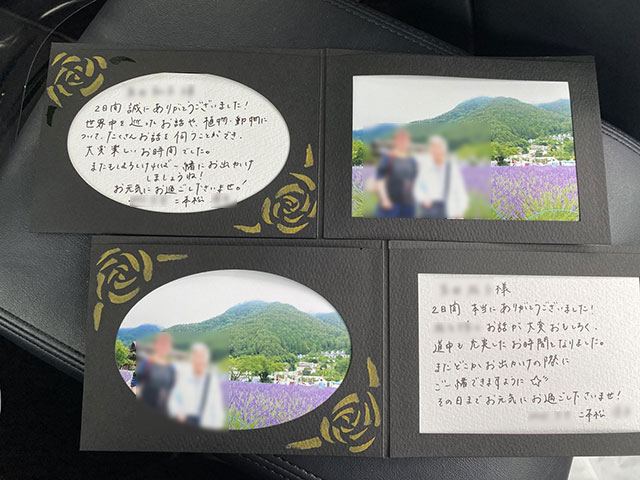 様
2日間 誠にありがとうございました!
世界中を巡ったお話や、植物・動物に
ついて、たくさんお話を伺うことができ、
大変楽しいお時間でした。
またよろしければ一緒にお出かけ
しましょうね!
お元気にお過ごしくださいませ。
二本松
様
2日間 本当にありがとうございました!
お話が大変おもしろく、
道中も充実したお時間となりました。
またどこかお出かけの際に
ご一緒できますように☆彡
その日までお元気にお過ごしくださいませ!
二本松